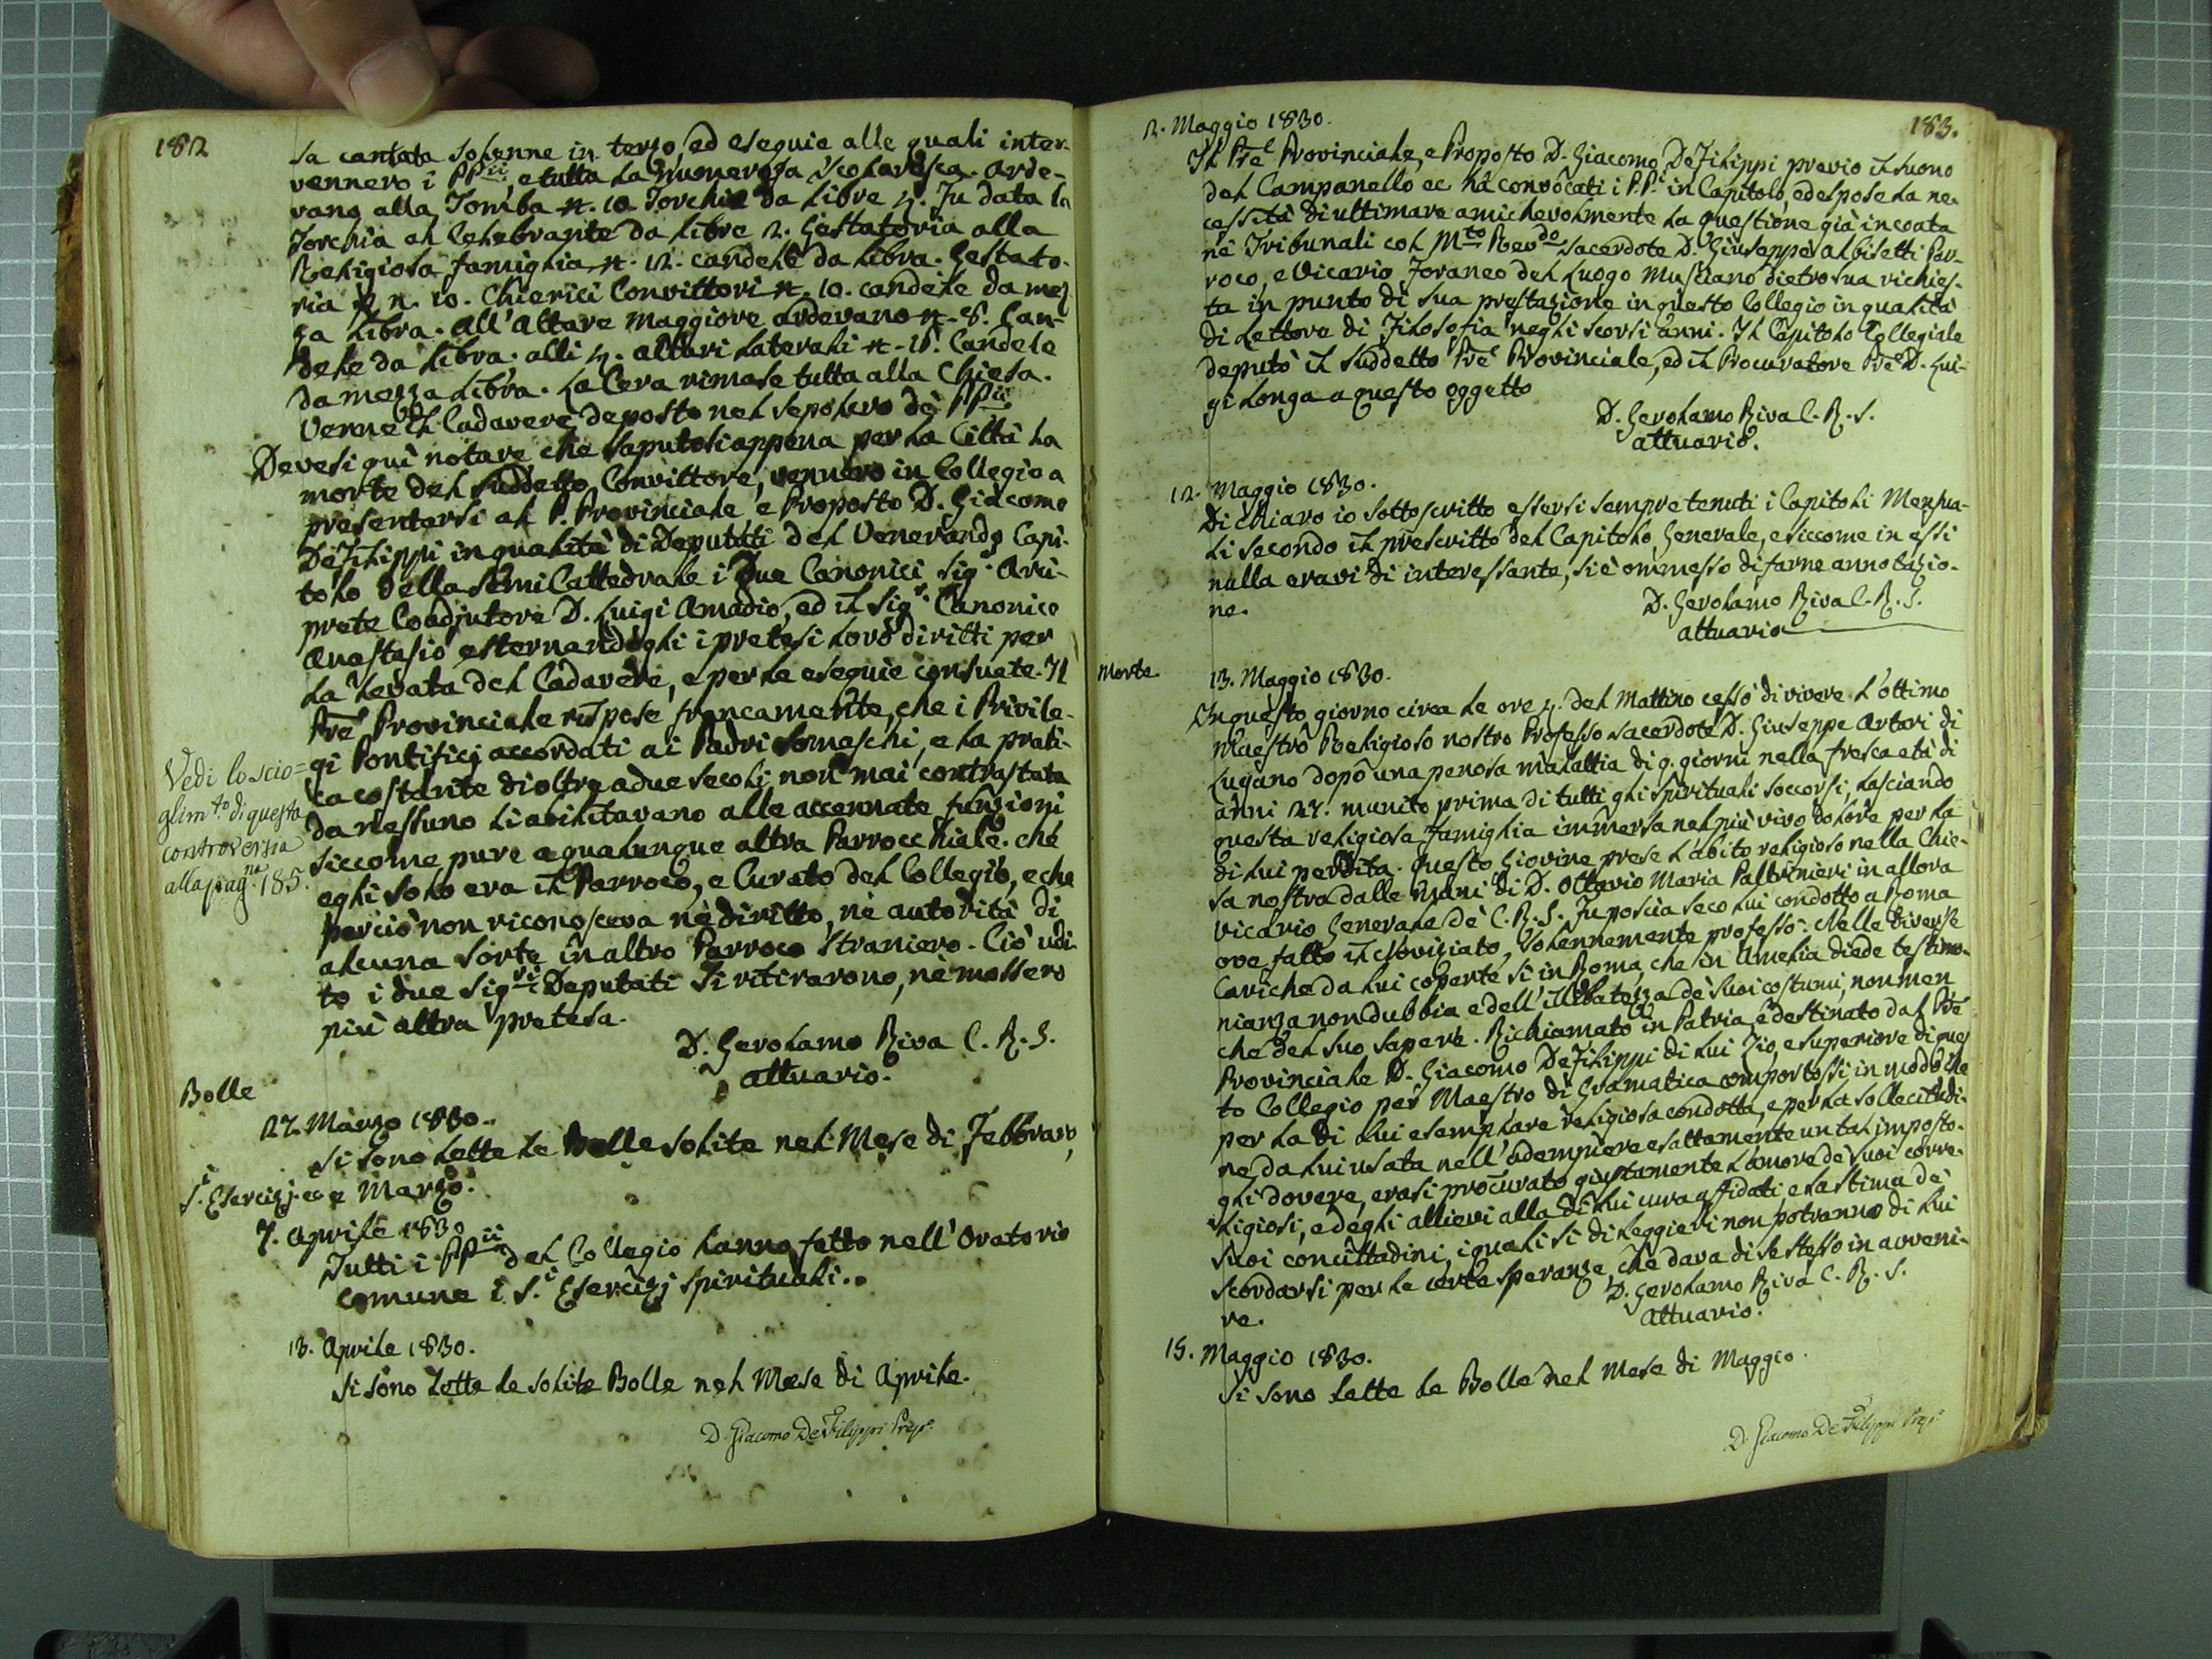 182
sa cantata solenne in terzo ed esequie alle quali inter-
vennero i PPii, e tutta la numerosa Scolaresca. Arde-
vano alla Tomba n. 10 Torchie da libre 4. Fu data la
Torchia al Celebrante da libre 2. Gestatoria alla
Religiosa famiglia n. 12. candele da libra. Gestato-
ria n. 10. Chierici Convittori n. 10. candele da mez-
za libra. All'Altare Maggiore ardevano n. 8. Can-
dele da libra. alli 4. altari laterali n. 18. Candele
da mezza libra. La Cera rimase tutta alla Chiesa.
Venne il Cadavere deposto nel sepolcro de' PPii
Devesi quì notare che saputosi appena per la Città la
morte del suddetto Convittore, vennero in Collegio a
presentarsi al P. Provinciale e Proposto D. Giacomo
DeFilippi in qualità di Deputati del Venerando Capi-
tolo della SemiCattedrale i Due Canonici Sig.r Arci-
prete Coadjutore D. Luigi Amadio, ed il Sigr. Canonico
Anastasio esternandogli i pretesi loro diritti per
la levata del Cadavere, e per le esequie consuete. Il
Pre Provinciale rispose francamente, che i Privile-
gi Pontificj accordati ai Padri Somaschi, e la prati-
ca costante di oltre a due secoli non mai contrastata
da nessuno li abilitavano alle accennate funzioni
siccome pure a qualunque altra Parrocchiale. che
egli solo era il Parroco, e Curato del Collegio, e che
perciò non riconosceva nè diritto, nè autorità di
alcuna sorte in altro Parroco straniero. Ciò udi-
to i due Sigri Deputati si ritirarono, nè mossero
più altra pretesa.
Vedi lo scio=
glimto. di questa
controversia
alla pagna. 185.
D. Gerolamo Riva C. R. S.
attuario.
Bolle
27. Marzo 1830.
Si sono lette le Bolle solite nel Mese di Febbraro,
e Marzo.
S.i Esercizj ec
7. Aprile 1830
Tutti i PPii del Collegio hanno fatto nell'Oratorio
comune i S.i Esercizj spirituali.
13. Aprile 1830.
Si sono lette le solite Bolle nel Mese di Aprile.
D. Giacomo DeFilippi Prep.o
183.
2. Maggio 1830.
Il Pre Provinciale, e Proposto D. Giacomo DeFilippi previo il suono
del Campanello ec ha convocati i P.P.i in Capitolo, ed espose la ne-
cessità di ultimare amichevolmente la questione già incoata
ne Tribunali col Mto Revdo Sacerdote D. Giuseppe Albisetti Par-
roco, e Vicario Foraneo del Luogo Musciano dietro sua richies-
ta in punto di sua prestazione in questo Collegio in qualità
di Lettore di Filosofia negli scorsi anni. Il Capitolo Collegiale
deputò il suddetto Pre Provinciale, ed il Procuratore Pre D. Lui-
gi Longa a questo oggetto
D. Gerolamo Riva C. R. S.
attuario.
12. Maggio 1830.
Dichiaro io sottoscritto essersi sempre tenuti i Capitoli Mensua-
li secondo il prescritto del Capitolo Generale, e siccome in essi
nulla eravi di interessante, si è ommesso di farne annotazio-
ne.
D. Gerolamo Riva C. R. S.
attuario
Morte
13. Maggio 1830.
In questo giorno circa le ore 4. del Mattino cessò di vivere l'ottimo
Maestro Religioso nostro Professo Sacerdote D. Giuseppe Artari di
Lugano dopo una penosa malattia di 9. giorni nella fresca età di
anni 27. munito prima di tutti gli spirituali soccorsi, lasciando
questa religiosa famiglia immersa nel più vivo dolore per la
di lui perdita. Questo Giovine prese l'abito religioso nella Chie-
sa nostra dalle mani di D. Ottavio Maria Paltrinieri in allora
Vicario Generale de' C. R. S. Fu poscia seco lui condotto a Roma
ove fatto il Noviziato, solennemente professò. Nelle diverse
Cariche da lui coperte sì in Roma, che in Amelia diede testimo-
nianza non dubbia e dell'illibatezza de' suoi costumi, non men
che del suo sapere. Richiamato in Patria, e destinato dal Pre
Provinciale D. Giacomo DeFilippi di lui Zio, e superiore di ques-
to Collegio per Maestro di Gramatica comportossi in modo che
per la di lui esemplare religiosa condotta, e per la sollecitudi-
ne da lui usata nell'adempiere esattamente un tal imposto-
gli dovere, erasi procurato giustamente l'amore de' suoi corre-
ligiosi, e degli allievi alla di lui cura affidati e la stima de'
suoi concittadini, i quali sì di leggieri non potranno di lui
scordarsi per le certe speranze, che dava di se stesso in avveni-
re.
D. Gerolamo Riva C. R. S.
Attuario.
15. Maggio 1830.
Si sono lette le Bolle nel Mese di Maggio.
D. Giacomo DeFilippi Prep.o